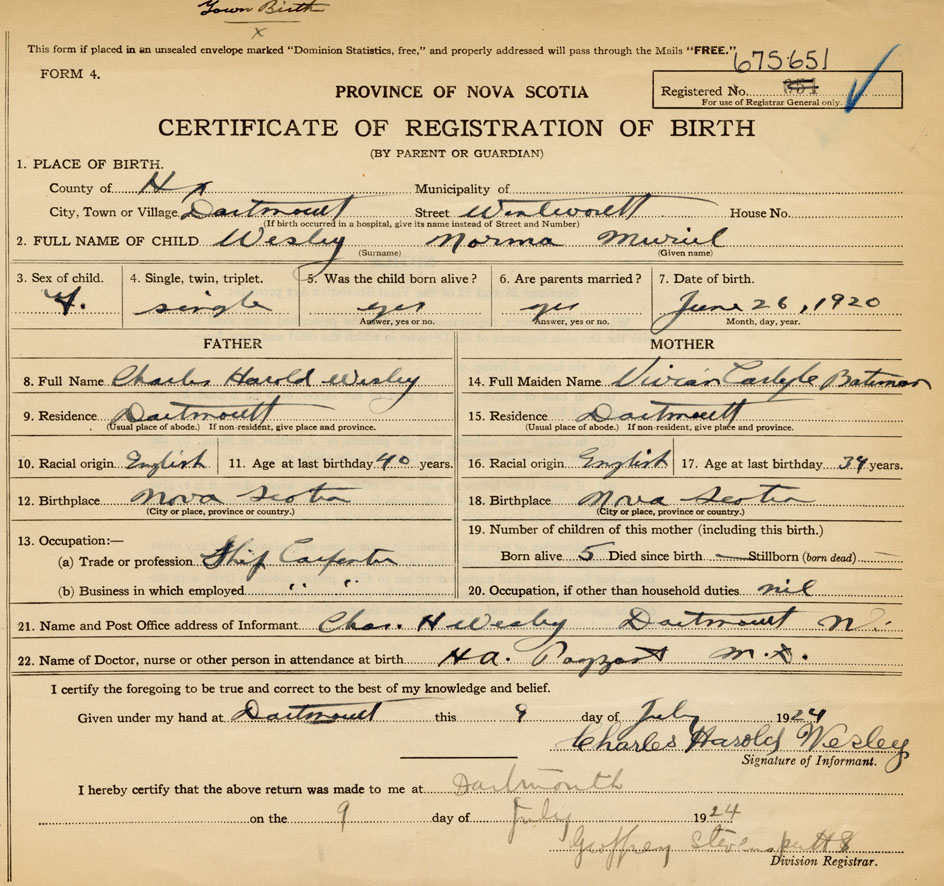 Town Birth
x
This form if placed in an unsealed envelope marked "Dominion Statistics, free," and properly addressed will pass through the Mails "FREE."
675651
FORM 4.
PROVINCE OF NOVA SCOTIA
Registered No.
For use of Registrar General only.
CERTIFICATE OF REGISTRATION OF BIRTH
(BY PARENT OR GUARDIAN)
1. PLACE OF BIRTH.
County of Hx Municipality of
City, Town or Village. Dartmouth Street Wentworth House No.
(If birth occurred in a hospital, give its name instead of Street and Number)
2. FULL NAME OF CHILD Wesley Norma Muriel
(Surname) (Given name)
3. Sex of child. 4. Single, twin, triplet. 5. Was the child born alive? 6. Are parents married? 7. Date of birth.
F. single yes yes June 26, 1920
Answer, yes or no. Answer, yes or no. Month, day, year.
FATHER MOTHER
8. Full Name Charles Harold Wesley 14. Full Maiden Name Vivian Carlyle Bateman
9. Residence Dartmouth 15. Residence Dartmouth
(Usual place of abode.) If non-resident, give place and province. (Usual place of abode.) If non-resident, give place and province.
10. Racial origin English 11. Age at last birthday 40 years. 16. Racial origin English 17. Age at last birthday years.
12. Birthplace Nova Scotia 18. Birthplace Nova Scotia
(City or place, province or country.) (City or place, province or country.)
19. Number of children of this mother (including this birth.)
13. Occupation:—
Born alive 5 Died since birth — Stillborn (born dead)
(a) Trade or profession Ship Carpenter
(b) Business in which employed " " 20. Occupation, if other than household duties nil
21. Name and Post Office address of Informant Chas. H Wesley Dartmouth N.
22. Name of Doctor, nurse or other person in attendance at birth H A. M.D.
I certify the foregoing to be true and correct to the best of my knowledge and belief.
Given under my hand at Dartmouth this 9 day of July 1924
Charles Harold Wesley
Signature of Informant.
I hereby certify that the above return was made to me at Dartmouth
on the 9 day of July 1924
Geoffrey Stevens
Division Registrar.